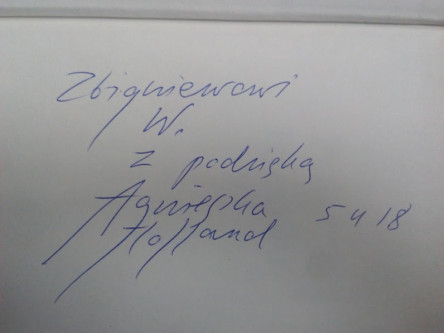 Zbigniewowi
W.
z podzięką
Agnieszka 5 4 18
Holland